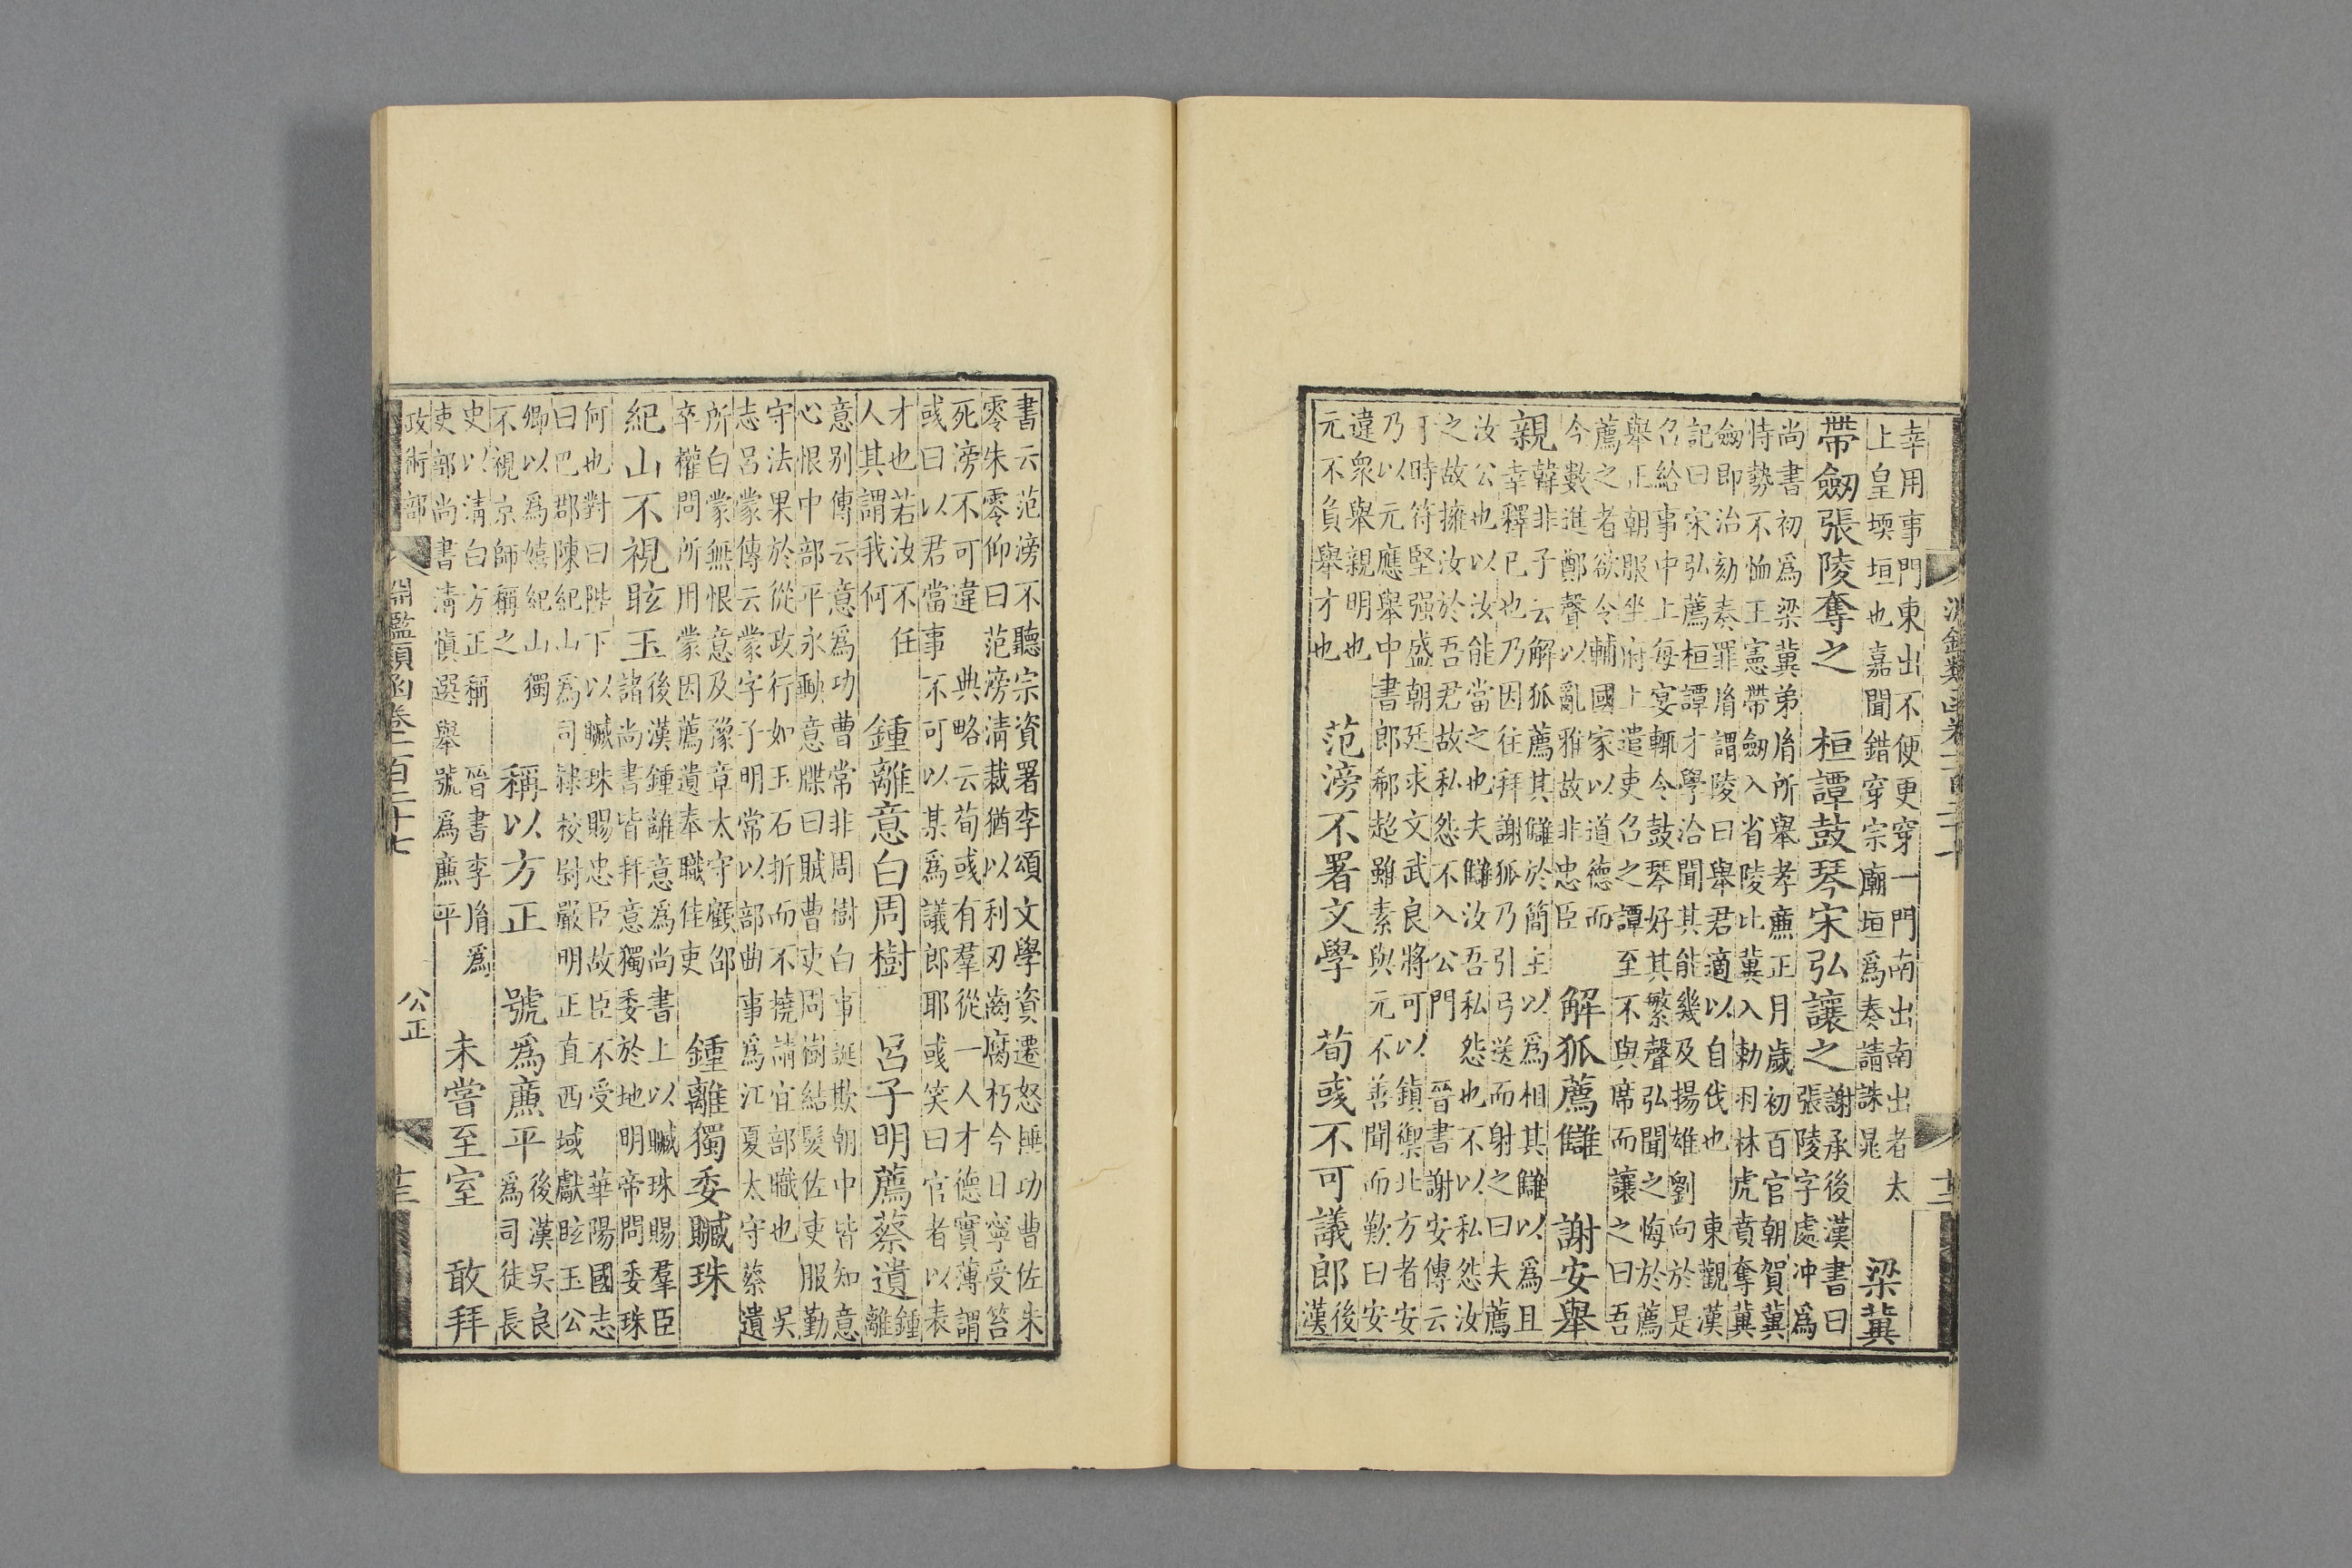 淵鑑類函卷一百二十七 十二
幸用事門東出不便更穿一門南出南出者太
上皇堧垣也嘉聞錯穿宗廟垣爲奏請誅晁
梁冀
帶劒張陵奪之 桓譚鼓琴宋弘讓之
謝承後漢書曰
張陵字處冲爲
尚書初爲梁冀弟胤所舉孝廉正月歲初百官朝賀冀
恃勢不恤王憲帶劒入省陵比冀入勅羽林虎賁奪冀
劒即治劾奏罪胤謂陵曰舉君適以自伐也 東觀漢
記曰宋弘薦桓譚才學洽聞其能幾及揚雄劉向於是
召給事中上每宴輒令鼓琴好其繁聲弘聞之悔於薦
舉正朝服坐府上遣吏召之譚至不與席而讓之曰吾
薦之者欲令輔國家以道德而
今數進鄭聲以亂雅故非忠臣
解狐薦讎 謝安舉
親
韓非子云解狐薦其讎於簡主以爲相其讎以爲且
幸釋已也乃因往拜謝狐乃引弓送而射之曰夫薦
汝公也以汝能當之也夫讎汝吾私怨也不以私怨汝
之故擁汝於吾君故私怨不入公門 晉書謝安傳云
于時符堅强盛朝廷求文武良將可以鎮禦北方者安
乃以元應舉中書郎郗超雖素與元不善聞而歎曰安
違衆舉親明也
元不負舉才也
范滂不署文學 荀彧不可議郎
後
漢
書云范滂不聽宗資署李頌文學資遷怒捶功曹佐朱
零朱零仰曰范滂清裁猶以利刃齒腐朽今日寧受笞
死滂不可違 典略云荀彧有羣從一人才德實薄謂
彧曰以君當事不可以某爲議郎耶彧笑曰官者以表
才也若汝不任
人其謂我何
鍾離意白周樹 呂子明薦蔡遺
鍾
離
意别傳云意爲功曹常非周樹白事誕欺朝中皆知意
心恨中部平永意牒曰賊曹吏周樹結髮佐吏服勤
守法果於從政行如玉石折而不撓請宜部職也 吳
志呂蒙傳云蒙字子明常以部曲事爲江夏太守蔡遺
所白蒙無恨意及豫章太守顧邵
卒權問所用蒙因薦遺奉職佳吏
鍾離獨委贓珠
紀山不視眩玉
後漢鍾離意爲尚書上以贓珠賜羣臣
諸尚書皆拜意獨委於地明帝問委珠
何也對曰陛下以贓珠賜忠臣故臣不受 華陽國志
曰巴郡陳紀山爲司隸校尉嚴明正直西域獻眩玉公
卿以爲嬉紀山獨
不視京師稱之
稱以方正 號爲廉平
後漢吳良
爲司徒長
史以清白方正稱 晉書李胤爲
吏部尚書清慎選舉號爲廉平
未嘗至室 敢拜
政術部 淵鑑類函卷一百二十七 公正 十三